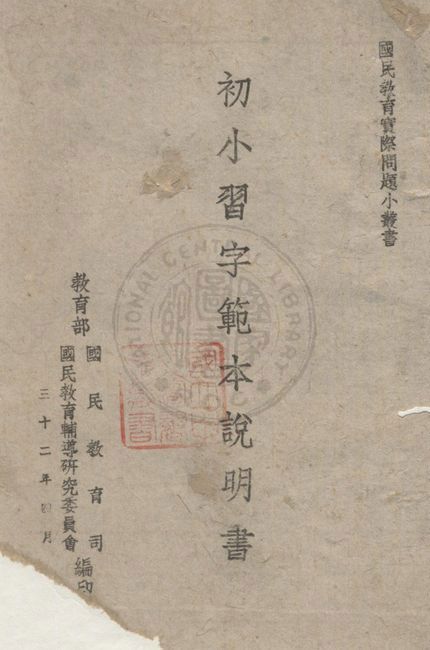 國民教育實際問題小叢書
初小習字範本說明書
教育部
國民教育司
國民教育輔導研究委員會
編印
三十二年四月
NATIONAL CENTRAL LIBRARY